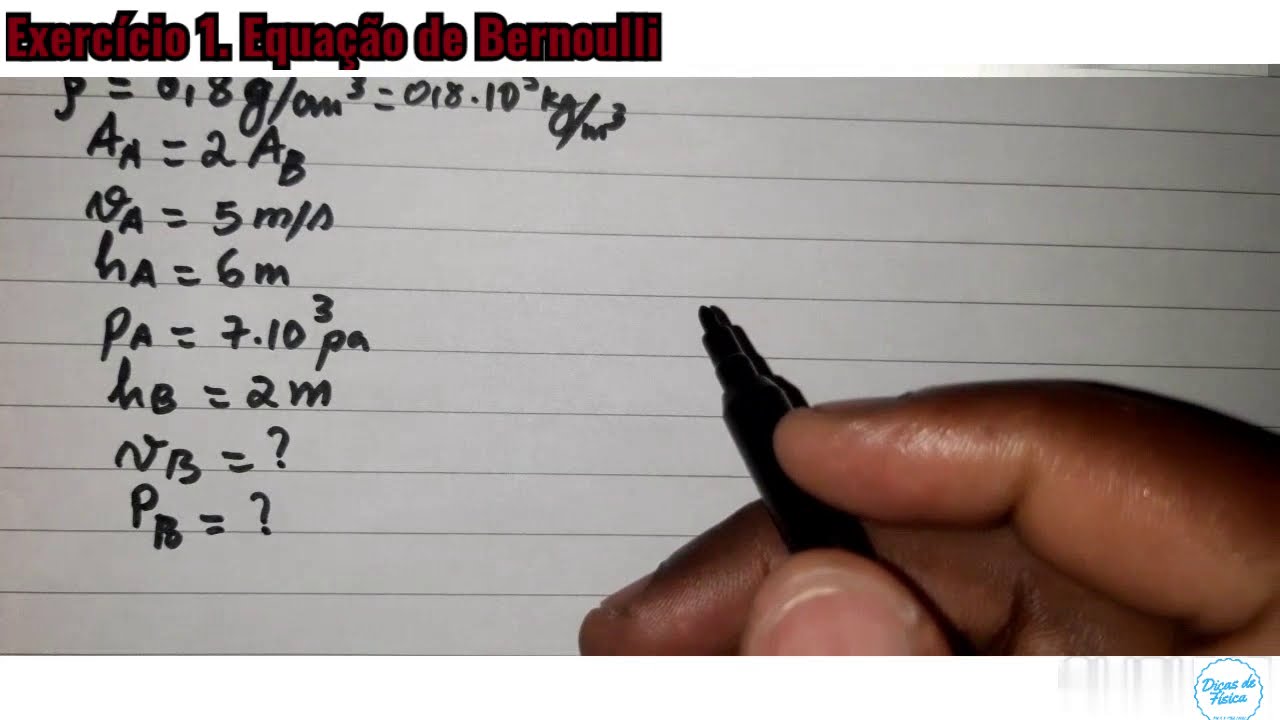 Exercício 1. Equação de Bernoulli
ρ = 0,8 g/cm³ = 0,8 . 10³ kg/m³
A_A = 2 A_B
v_A = 5 m/s
h_A = 6 m
p_A = 7.10³ pa
h_B = 2 m
v_B = ?
P_B = ?
Dicas de
Física